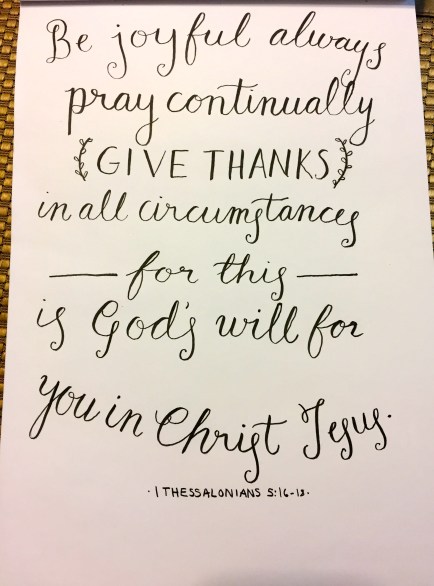 Be joyful always
pray continually
GIVE THANKS
in all circumstances
for this
is God's will for
you in Christ Jesus.
· 1 THESSALONIANS 5:16-18 ·